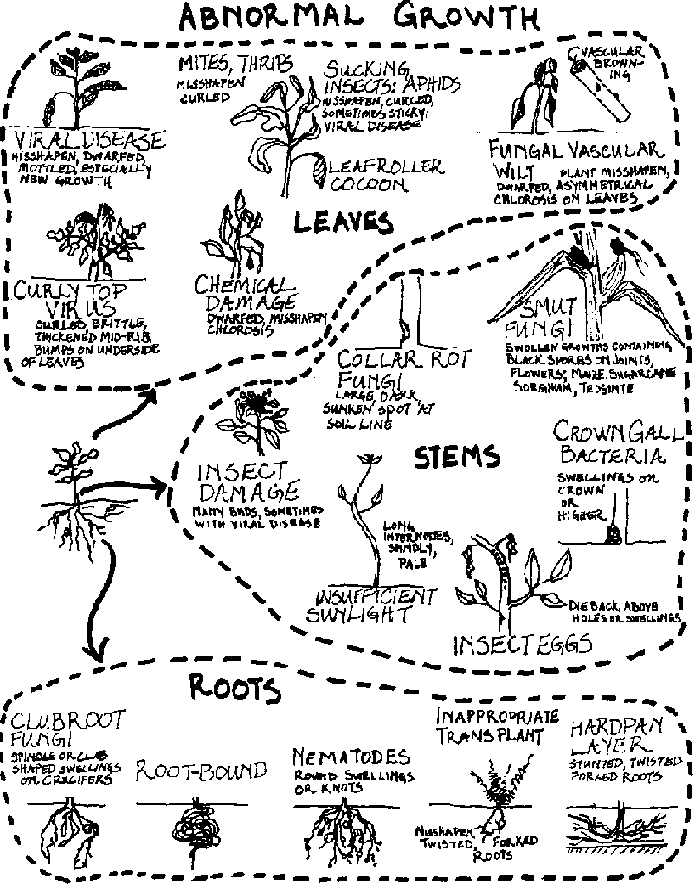 ABNORMAL GROWTH
VIRAL DISEASE
MISSHAPEN, DWARFED,
MOTTLED, ESPECIALLY
NEW GROWTH
MITES, THRIPS
MISSHAPEN
CURLED
SUCKING
INSECTS: APHIDS
MISSHAPEN, CURLED,
SOMETIMES STICKY:
VIRAL DISEASE
LEAFROLLER
COCOON
VASCULAR
BROWN-
ING
FUNGAL VASCULAR
WILT PLANT MISSHAPEN,
DWARFED, ASYMMETRICAL
CHLOROSIS ON LEAVES
LEAVES
CURLY TOP
VIRUS
CURLED BRITTLE,
THICKENED MID-RIB
BUMPS ON UNDERSIDE
OF LEAVES
CHEMICAL
DAMAGE
DWARFED, MISSHAPEN
CHLOROSIS
COLLAR ROT
FUNGI
LARGE, DARK,
SUNKEN SPOT AT
SOIL LINE
SMUT
FUNGI
SWOLLEN GROWTHS CONTAINING
BLACK SPORES ON JOINTS,
FLOWERS; MAIZE, SUGARCANE
SORGHUM, TEOSINTE
INSECT
DAMAGE
MANY BUDS, SOMETIMES
WITH VIRAL DISEASE
STEMS
CROWN GALL
BACTERIA
SWELLINGS ON
CROWN
OR
HIGHER
LONG
INTERNODES,
SPINDLY,
PALE
INSUFFICIENT
SUNLIGHT
DIEBACK ABOVE
HOLES OR SWELLINGS
INSECT EGGS
ROOTS
CLUBROOT
FUNGI
SPINDLE OR CLUB
SHAPED SWELLINGS
ON CRUCIFERS
ROOT-BOUND
NEMATODES
ROUND SWELLINGS
OR KNOTS
INAPPROPRIATE
TRANSPLANT
MISSHAPEN, FORKED
TWISTED, ROOTS
HARDPAN
LAYER
STUNTED, TWISTED
FORKED ROOTS